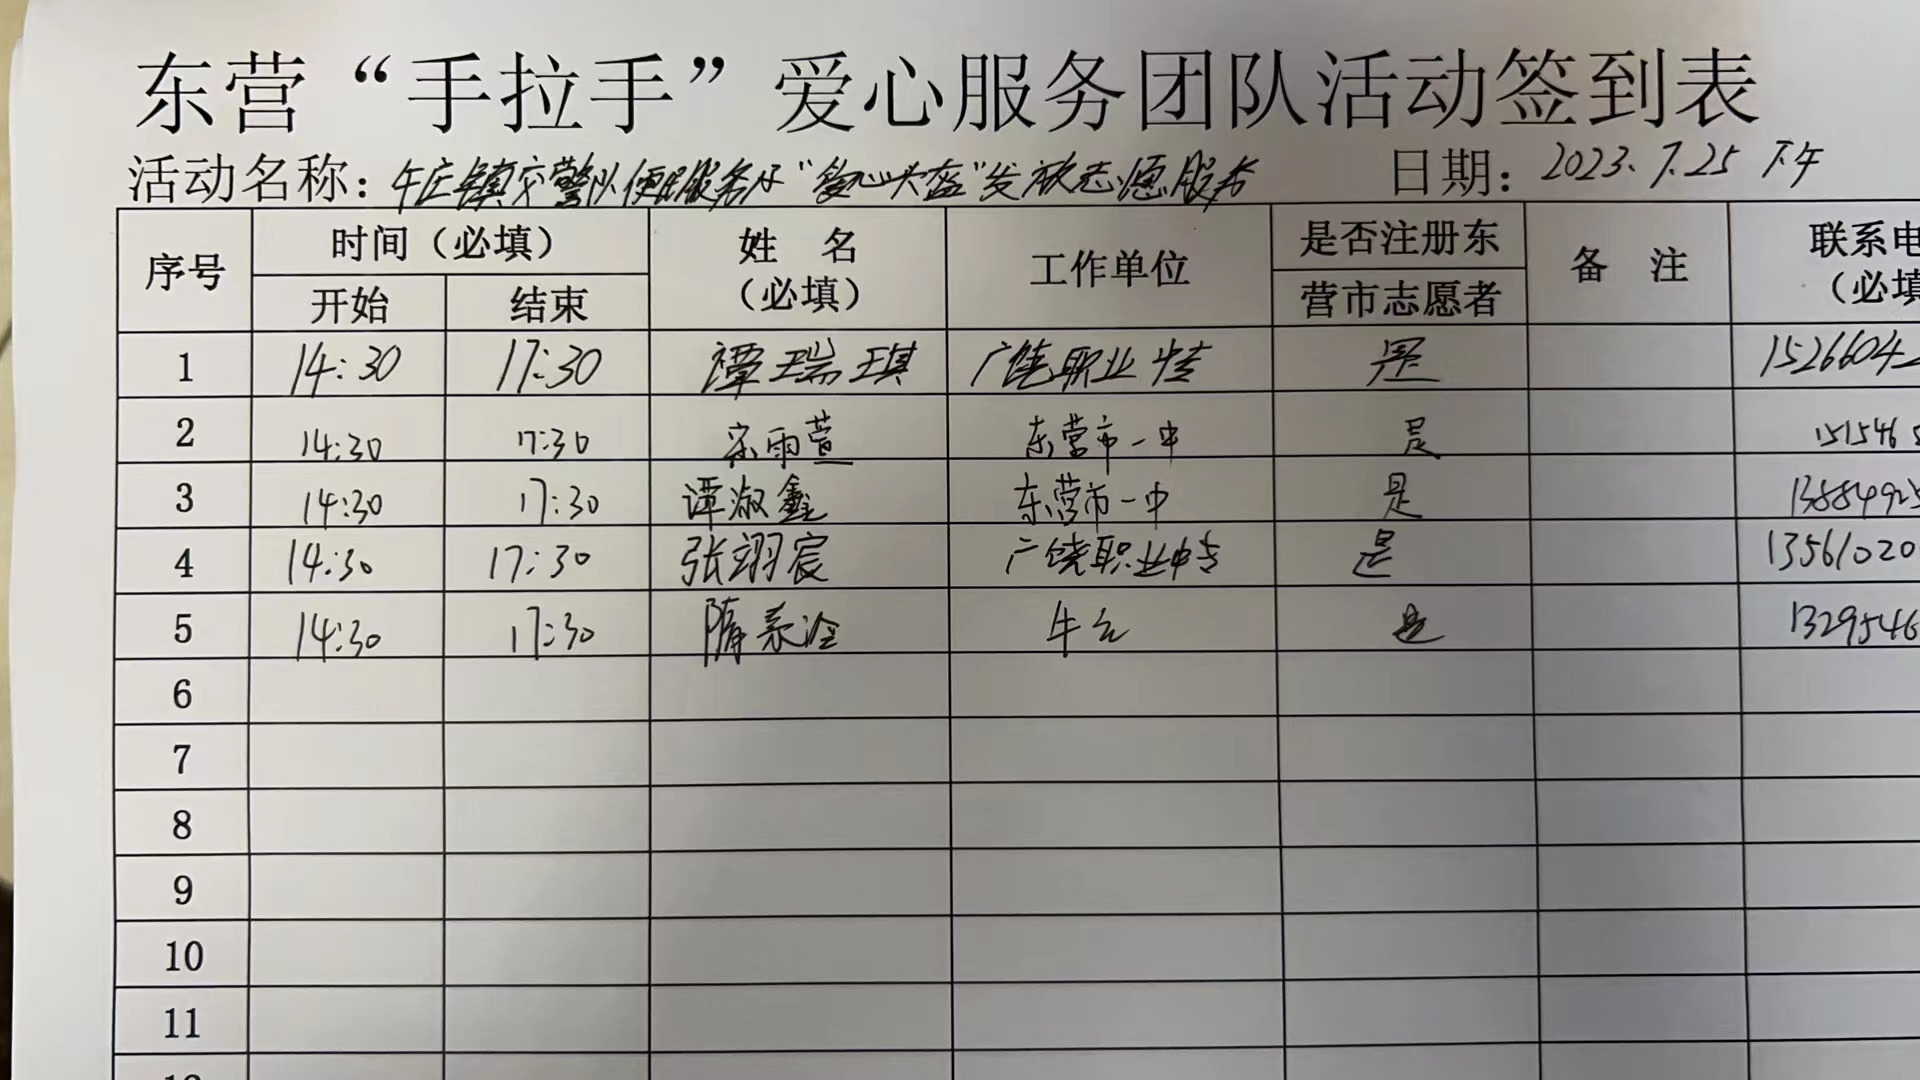 东营“手拉手”爱心服务团队活动签到表
活动名称：牛庄镇交警队便民服务及“爱心头盔”发放志愿服务 日期：2023.7.25 下午
序号 时间（必填） 姓 名（必填） 工作单位 是否注册东营市志愿者 备 注 联系电（必填
开始 结束
1 14:30 17:30 谭瑞琪 广饶职业中专 是 1526604
2 14:30 17:30 宋雨萱 东营市一中 是 151546
3 14:30 17:30 谭淑鑫 东营市一中 是 1388492
4 14:30 17:30 张翊宸 广饶职业中专 是 13561020
5 14:30 17:30 隋 是 1329546
6
7
8
9
10
11